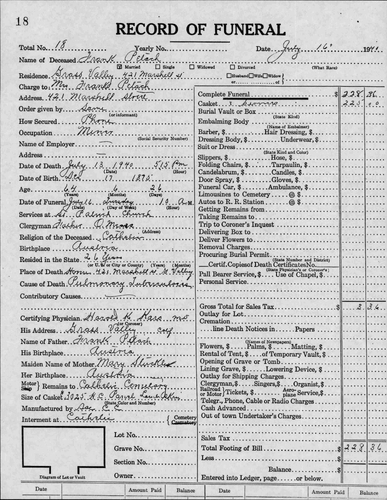 18
RECORD OF FUNERAL
Total No. 18 Yearly No. Date July 16 1940
Name of Deceased Frank Petach
Married Single Widowed Divorced (What Race)
Residence Grass Valley 421 Marshall St
Husband Wife Widow
Charge to Mrs. Frank Petach
Address 421 Marshall
Order given by Same
(or informant)
How Secured Phone
Occupation Miner
(Social Security Number)
Name of Employer
Date of Death July 13 1940 5:15 Pm
Date of Birth 17 1875
Age 64 6 26
(Years) (Months) (Days)
Date of Funeral July 16 10 Am
Services at St Patrick Church
Clergyman Father O
Religion of the Deceased Catholic
Birthplace Austria
Resided in the State 26 Years
Place of Death Home 421 Marshall St G Valley
Cause of Death Pulmonary Tuberculosis
Contributory Causes
Certifying Physician Harold K MD
(or Coroner)
His Address Grass Valley Cal
Name of Father Frank Petach
His Birthplace Austria
Maiden Name of Mother Mary
Her Birthplace Austria
Remains to Catholic Cemetery
Size of Casket
(State Color and Number)
Manufactured by
Interment at Catholic Cemetery
Lot No.
Grave No.
Section No.
Owner
Diagram of Lot or Vault
Complete Funeral 228 36
Casket 225 00
Burial Vault or Box
(State Kind)
Embalming Body
(Name of Embalmer)
Barber, $ Hair Dressing, $
Dressing Body, $ Underwear, $
Suit or Dress
(State Kind and Color)
Slippers, $ Hose, $
Folding Chairs, $ Tarpaulin, $
Candelabrum, $ Candles, $
Door Spray, $ Gloves, $
Funeral Car, $ Ambulance, $
Limousines to Cemetery @ $
Autos to R. R. Station @ $
Getting Remains from
Taking Remains to
Trip to Coroner's Inquest
Delivering Box to
Deliver Flowers to
Removal Charges
Procuring Burial Permit
(State Number and District)
Certif. Copies of Death Certificates No.
(State Physician's or Coroner's)
Pall Bearer Service, $ Use of Chapel, $
Personal Service
Gross Total for Sales Tax 3 36
Outlay for Lot
Cremation
line Death Notices in Papers
(Names of Newspapers)
Flowers, $ Palms, $ Matting, $
Rental of Tent, $ of Temporary Vault, $
Opening of Grave or Tomb
Lining Grave, $ Lowering Device, $
Outlay for Shipping Charges
Clergyman, $ Singers, $ Organist, $
Telegr., Phone, Cable or Radio Charges
Cash Advanced
Out of town Undertaker's Charges
Sales Tax
Total Footing of Bill 228 36
Less
Balance
Entered into Ledger, page or below.
Date Amount Paid Balance Date Amount Paid Balance